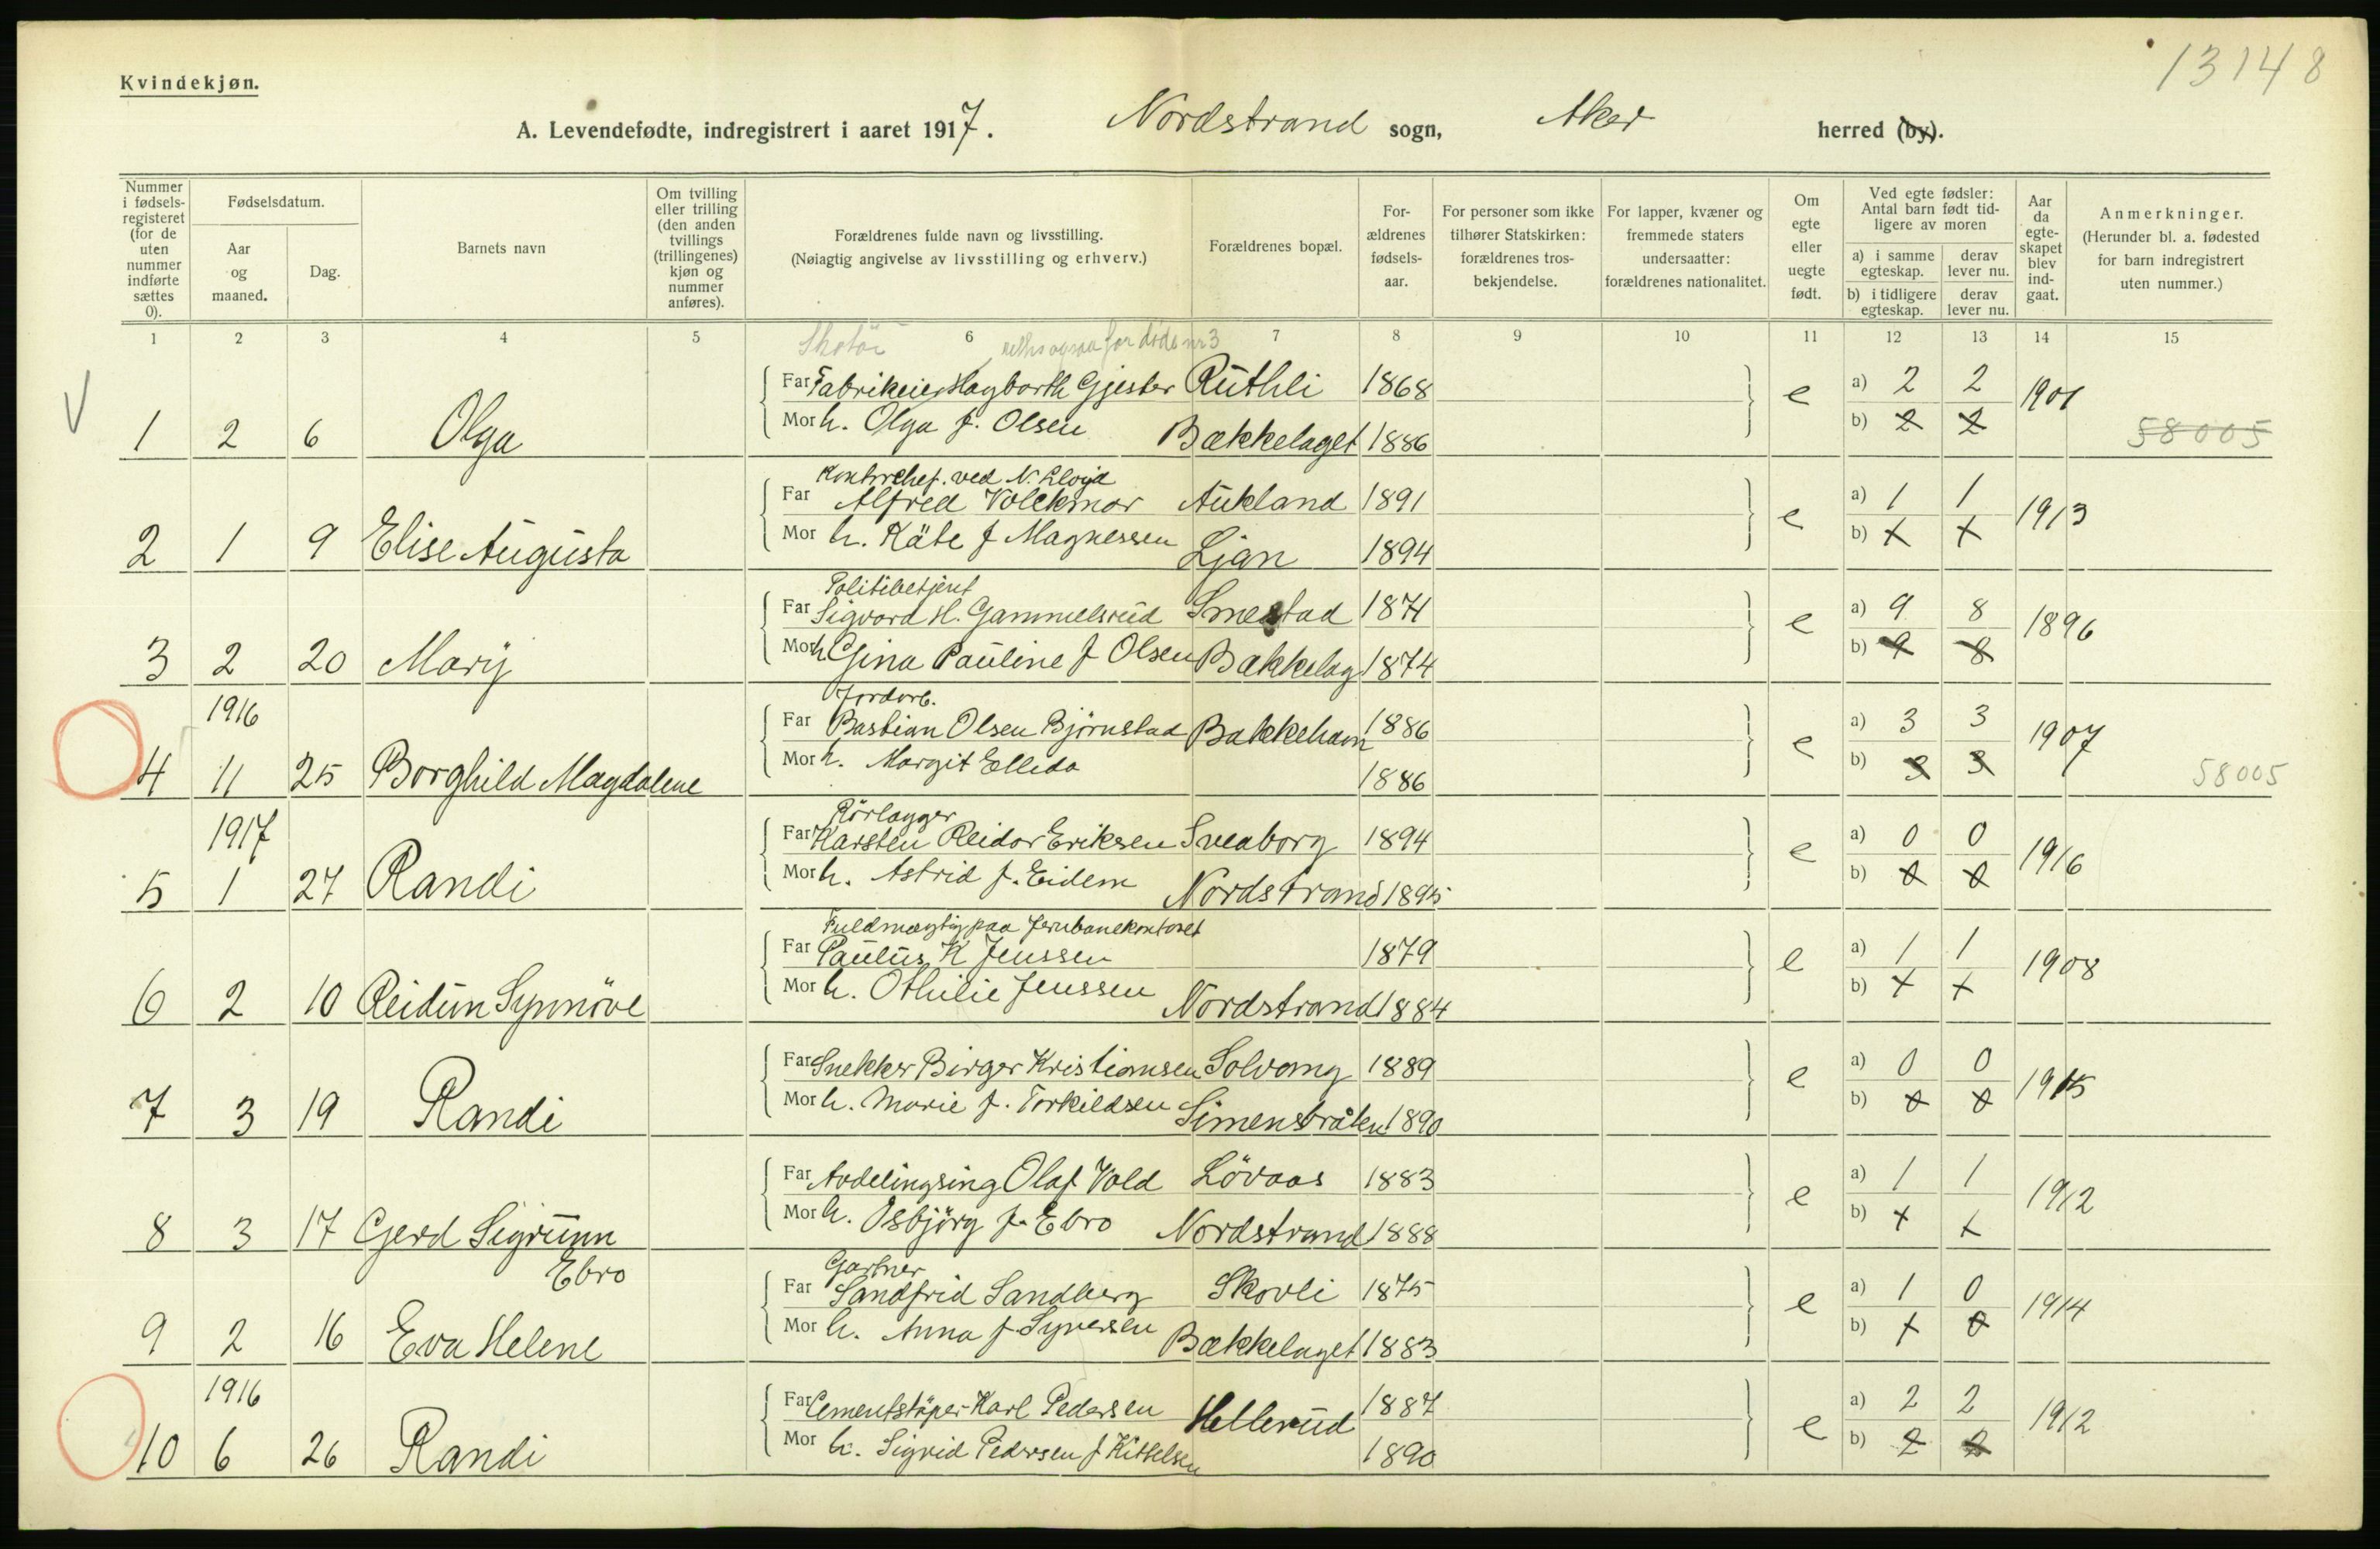 13148
Kvindekjøn.
A. Levendefødte, indregistrert i aaret 1917. Nordstrand sogn, Aker herred (by).
Nummer i fødsels-registeret (for de uten nummer indførte sættes 0).
Fødselsdatum.
Aar og maaned.
Dag.
Barnets navn
Om tvilling eller trilling (den anden tvillings (trillingenes) kjøn og nummer anføres).
Forældrenes fulde navn og livsstilling.
(Nøiagtig angivelse av livsstilling og erhverv.)
Forældrenes bopæl.
For-ældrenes fødsels-aar.
For personer som ikke tilhører Statskirken: forældrenes tros-bekjendelse.
For lapper, kvæner og fremmede staters undersaatter: forældrenes nationalitet.
Om egte eller uegte født.
Ved egte fødsler: Antal barn født tid-ligere av moren
a) i samme egteskap. derav lever nu.
b) i tidligere egteskap. derav lever nu.
Aar da egte-skapet blev ind-gaat.
Anmerkninger.
(Herunder bl. a. fødested for barn indregistrert uten nummer.)
1 2 3 4 5 6 7 8 9 10 11 12 13 14 15
for døde nr 3
Far Fabrikeier Hagbarth Gjester Ruthli 1868 e a) 2 2 1901
1 2 6 Olga Mor h. Olga f. Olsen Bækkelaget 1886 b) 2 2 58005
Kontorchef. ved N. Lloyd
Far Alfred Volckmar Aukland 1891 e a) 1 1 1913
2 1 9 Elise Augusta Mor h. Käte f Magnessen Ljan 1894 b) + +
Politibetjent
Far Sigvard H. Gammelsrud Smestad 1871 e a) 9 8 1896
3 2 20 Mary Mor h Gina Pauline f Olsen Bækkelag 1874 b) 9 8
1916
Jordarb.
Far Bastian Olsen Bjørnstad Bakkehavn 1886 e a) 3 3 1907
4 11 25 Borghild Magdalene Mor h. Margit Ellida 1886 b) 3 3 58005
1917
Rørlægger
Far Karsten Reidar Eriksen Sveaborg 1894 e a) 0 0 1916
5 1 27 Randi Mor h. Astrid f. Eidem Nordstrand 1895 b) 0 0
Fuldmægtig paa Jernbanekontoret
Far Paulus K Jenssen 1879 e a) 1 1 1908
6 2 10 Reidun Synnöve Mor h. Othilie Jenssen Nordstrand 1884 b) + +
Far Snekker Birger Kristiansen Solvang 1889 e a) 0 0 1915
7 3 19 Randi Mor h. Marie f. Torkildsen Simensbråten 1890 b) 0 0
Far Avdelingsing Olaf Vold Lövaas 1883 e a) 1 1 1912
8 3 17 Gerd Sigrunn Ebro Mor h. Osbjörg f. Ebro Nordstrand 1888 b) + +
Gartner
Far Sandfrid Sandberg Skovli 1875 e a) 1 0 1914
9 2 16 Eva Helene Mor h. Anna f Syversen Bækkelaget 1883 b) + 0
1916
Far Cementstøper Karl Pedersen Hellerud 1887 e a) 2 2 1912
10 6 26 Randi Mor h. Sigrid Pedersen f Kittelsen 1890 b) 2 2